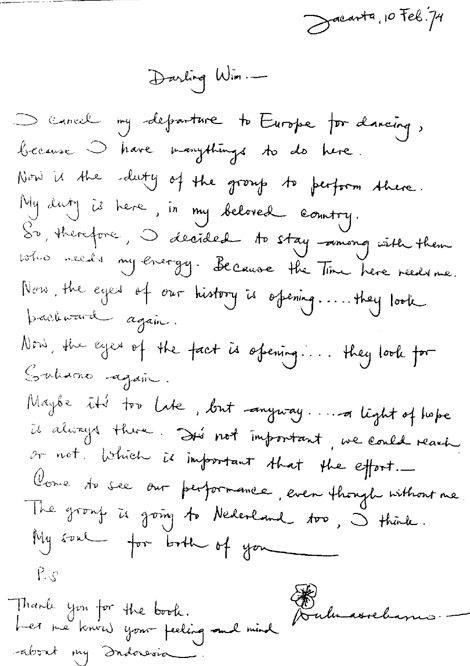 Jacarta, 10 Feb. '74
Darling Wim.—
I cancel my departure to Europe for dancing,
because I have manythings to do here.
Now is the duty of the group to perform there.
My duty is here, in my beloved country.
So, therefore, I decided to stay among with them
who needs my energy. Because the Time here needs me.
Now, the eyes of our history is opening..... they look
backward again.
Now, the eyes of the fact is opening.... they look for
Sukarno again.
Maybe it's too late, but anyway..... a light of hope
is always there. It's not important, we could reach
or not. Which is important that the effort.—
Come to see our performance, even though without me.
The group is going to Nederland too, I think.
My soul for both of you
P.S
Thank you for the book.
Let me know your feeling and mind
about my Indonesia.